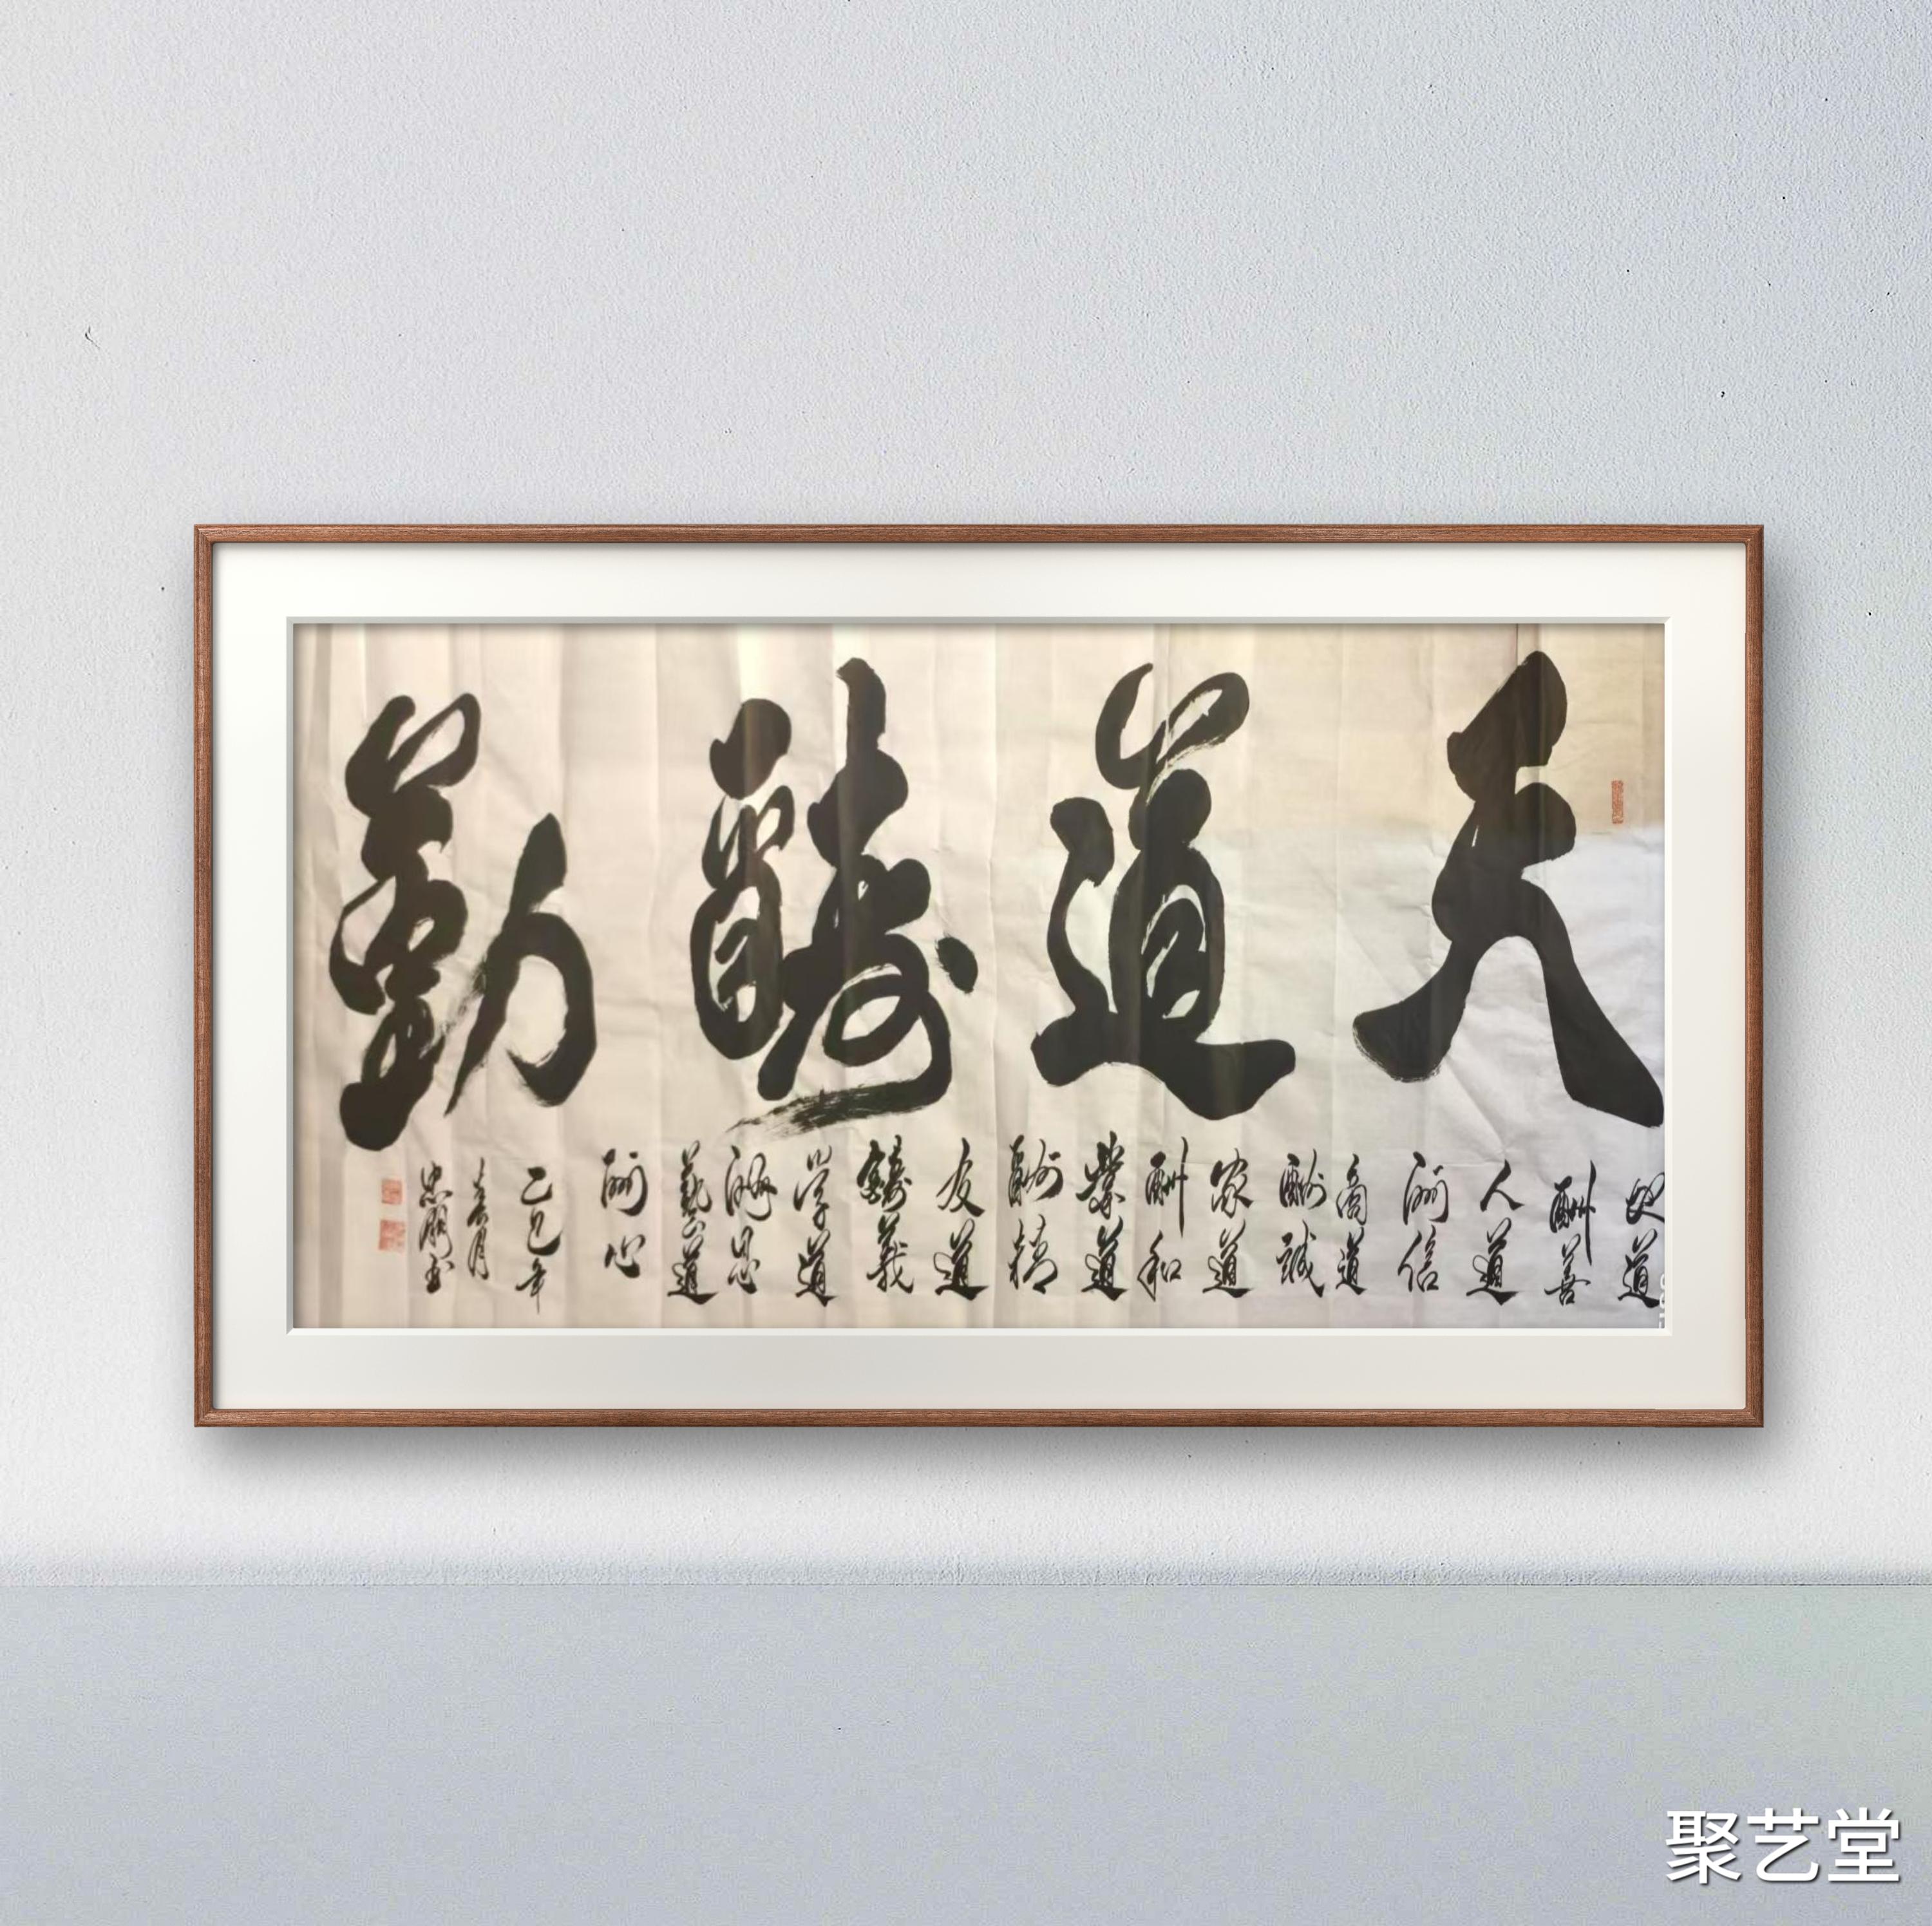 天道醻勤
地道
酬善
人道
酬信
商道
酬誠
家道
酬和
業道
酬精
友道
醻義
学道
酬思
藝道
酬心
乙巳年
春月
忠
聚艺堂